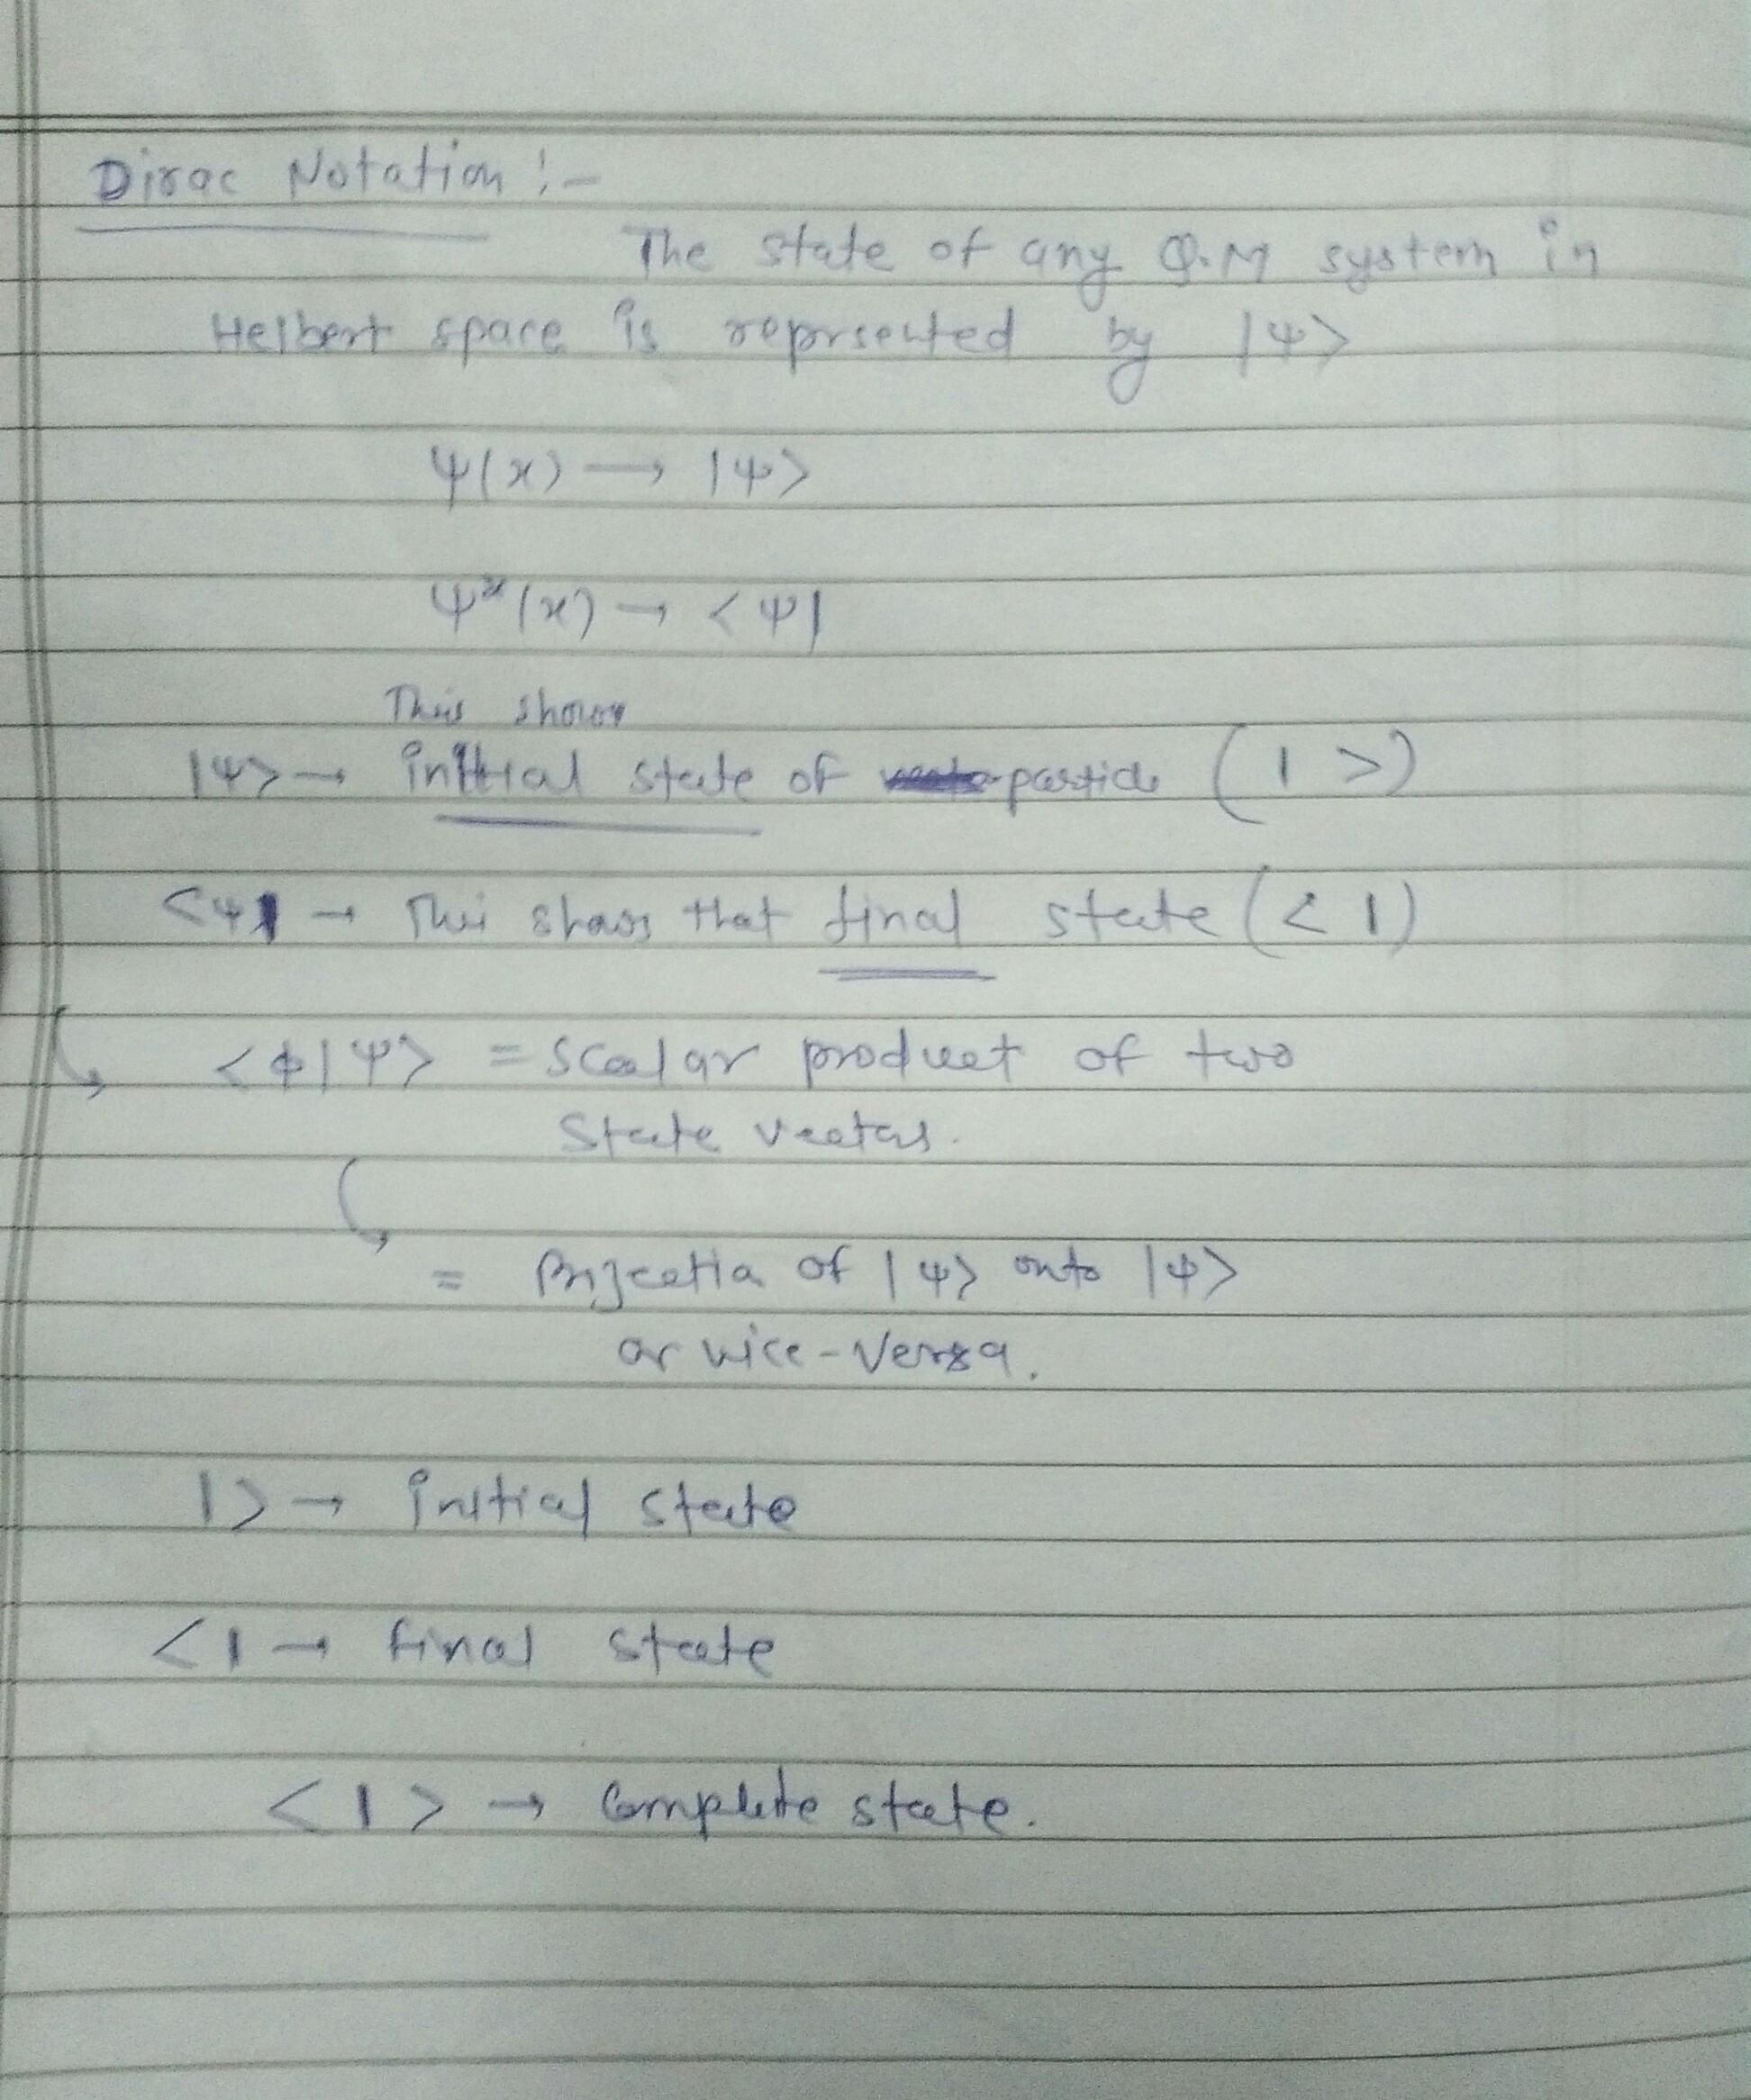 Dirac Notation :-
The state of any Q.M system in
Helbert space is reprsented by |ψ>
ψ(x) → |ψ>
ψ*(x) → <ψ|
This shows
|ψ> → initial state of particle ( | >)
<ψ| → This shows that final state (< |)
<ϕ|ψ> = scalar product of two
state vectors.
= Projectia of |ψ> onto |ψ>
or vice-versa.
| > → initial state
< | → final state
< | > → Complete state.